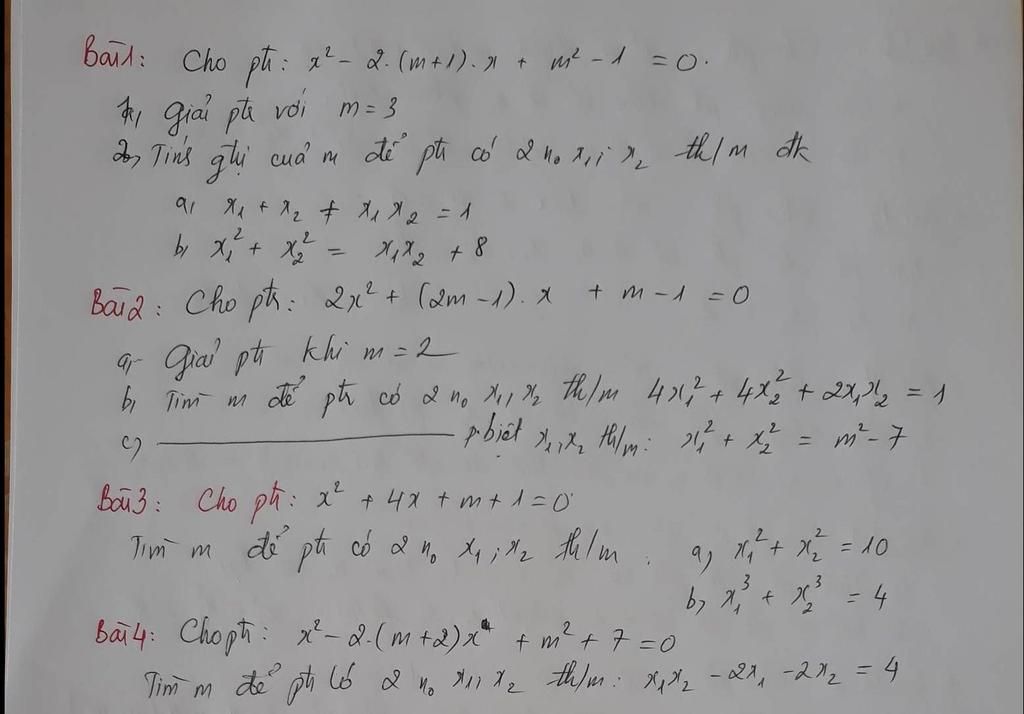 Bài 1: Cho pt: x² - 2.(m+1).x + m² - 1 = 0.
1, Giải pt với m = 3
2, Tìm gtrị của m để pt có 2 n₀ x₁; x₂ th/m đk
a, x₁ + x₂ + x₁x₂ = 1
b, x₁² + x₂² = x₁x₂ + 8
Bài 2: Cho pt: 2x² + (2m-1).x + m - 1 = 0
a, Giải pt khi m = 2
b, Tìm m để pt có 2 n₀ x₁, x₂ th/m 4x₁² + 4x₂² + 2x₁x₂ = 1
c, ———————— p.biệt x₁, x₂ th/m: x₁² + x₂² = m² - 7
Bài 3: Cho pt: x² + 4x + m + 1 = 0
Tìm m để pt có 2 n₀ x₁; x₂ th/m. a, x₁² + x₂² = 10
b, x₁³ + x₂³ = 4
Bài 4: Cho pt: x² - 2.(m+2)x + m² + 7 = 0
Tìm m để pt có 2 n₀ x₁, x₂ th/m: x₁x₂ - 2x₁ - 2x₂ = 4